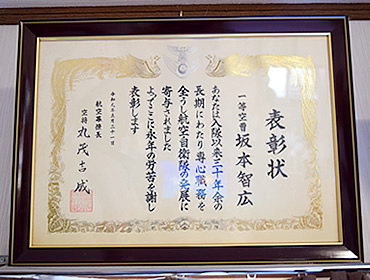 表彰状
一等空曹 坂本智広
あなたは入隊以来三十年余の
長期にわたり専心職務を
全うし航空自衛隊の発展に
寄与されました
よってここに永年の労苦を謝し
表彰します
航空幕僚長
空将 丸茂吉成